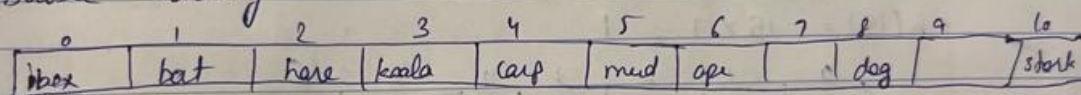 0 1 2 3 4 5 6 7 8 9 10
ibex bat hare koala carp mud ape dog stork